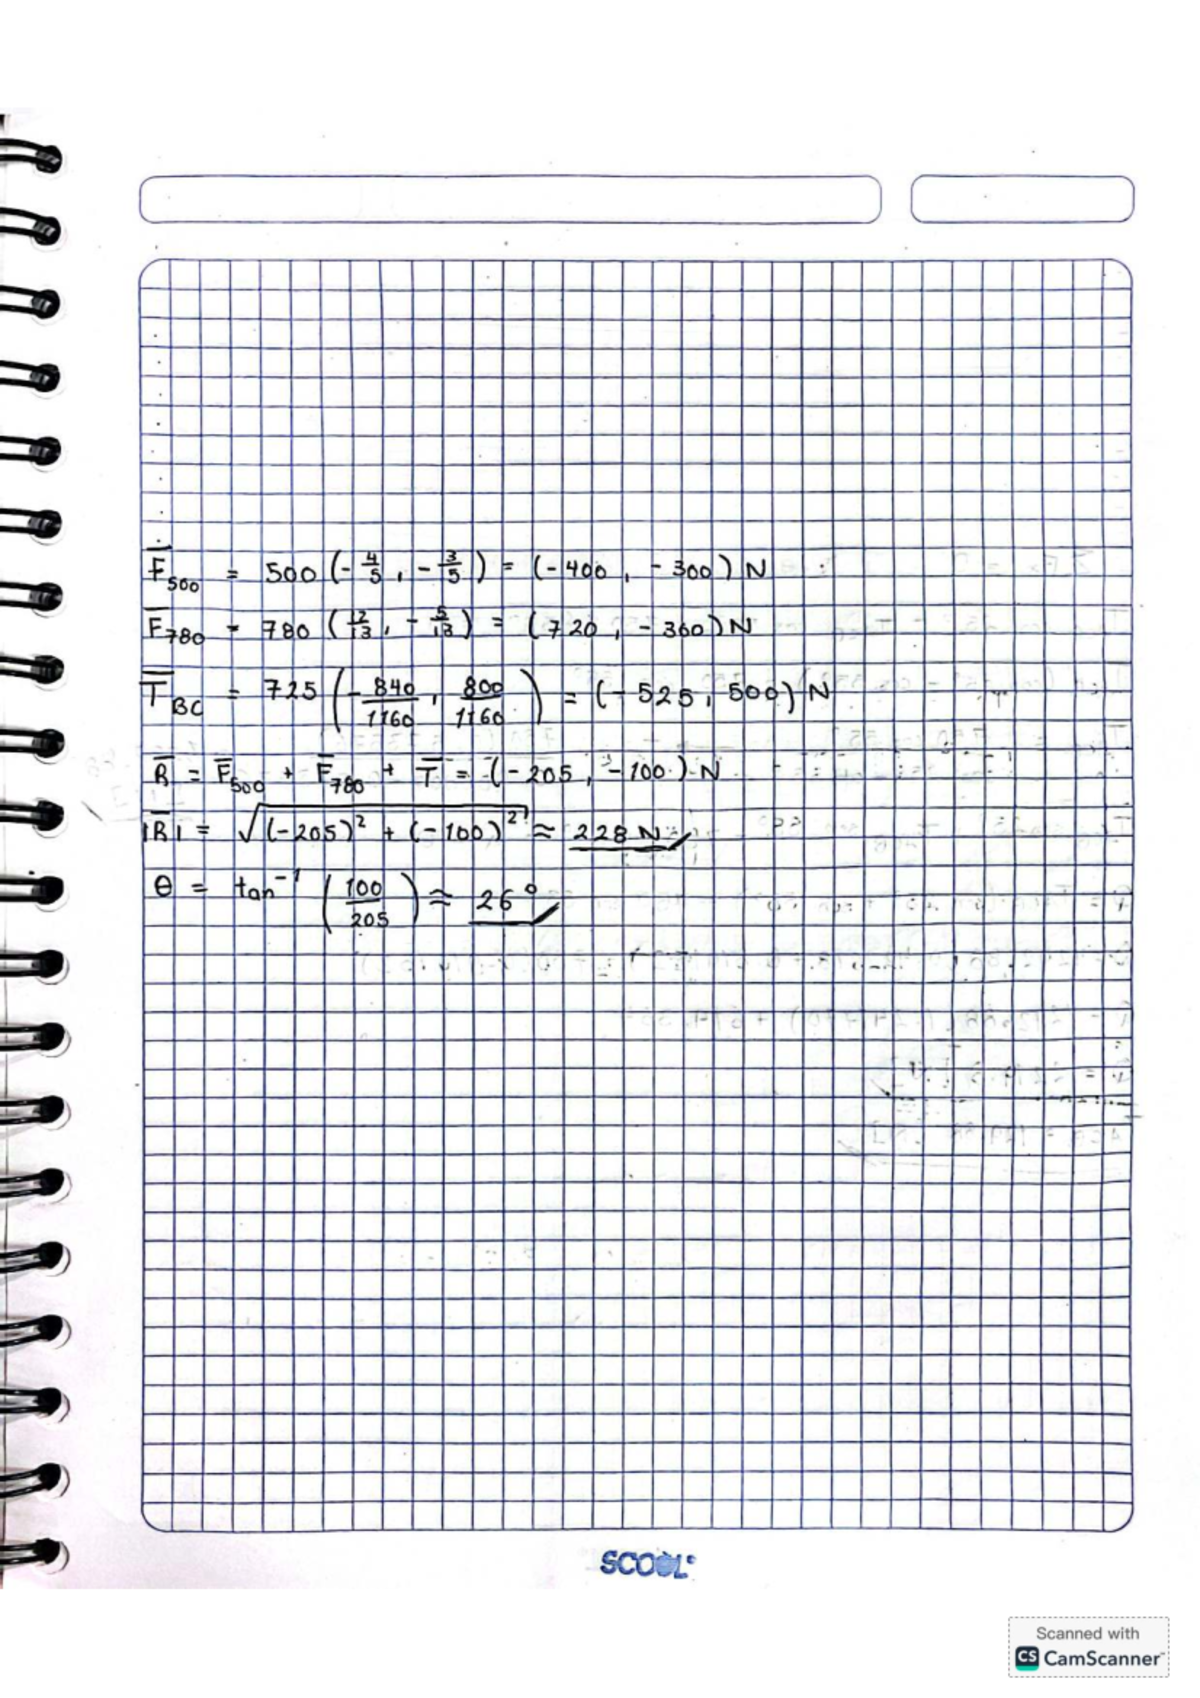 F̅500 = 500 (-4/5, -3/5) = (-400, -300) N
F̅780 = 780 (12/13, -5/13) = (720, -360) N
T̅BC = 725 (-840/1160, 800/1160) = (-525, 500) N
R̅ = F̅500 + F̅780 + T̅ = (-205, -100) N
|R̅| = √(-205)² + (-100)² ≈ 228 N
θ = tan⁻¹ (100/205) ≈ 26°
SCOOL
Scanned with
CS CamScanner